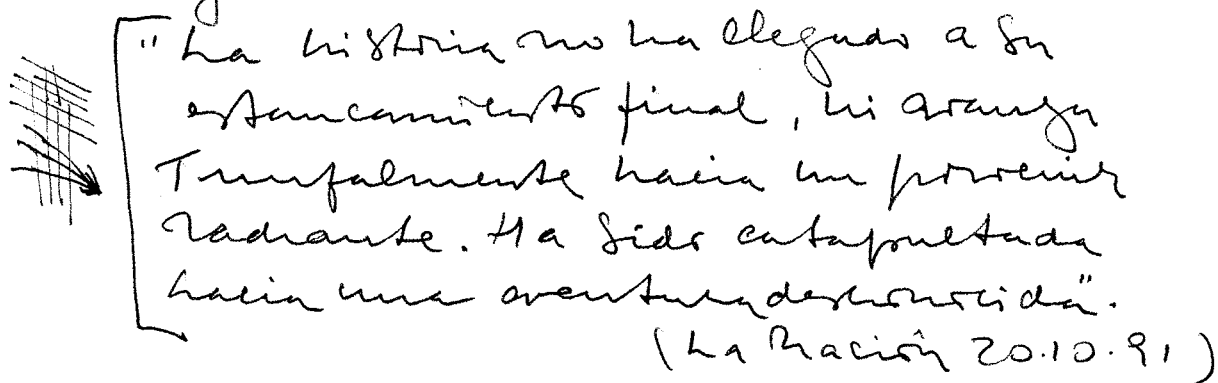 "La historia no ha llegado a su
estancamiento final, ni avanza
Triunfalmente hacia un porvenir
radiante. Ha sido catapultada
hacia una aventura desconocida".
(La Nación 20.10.91)